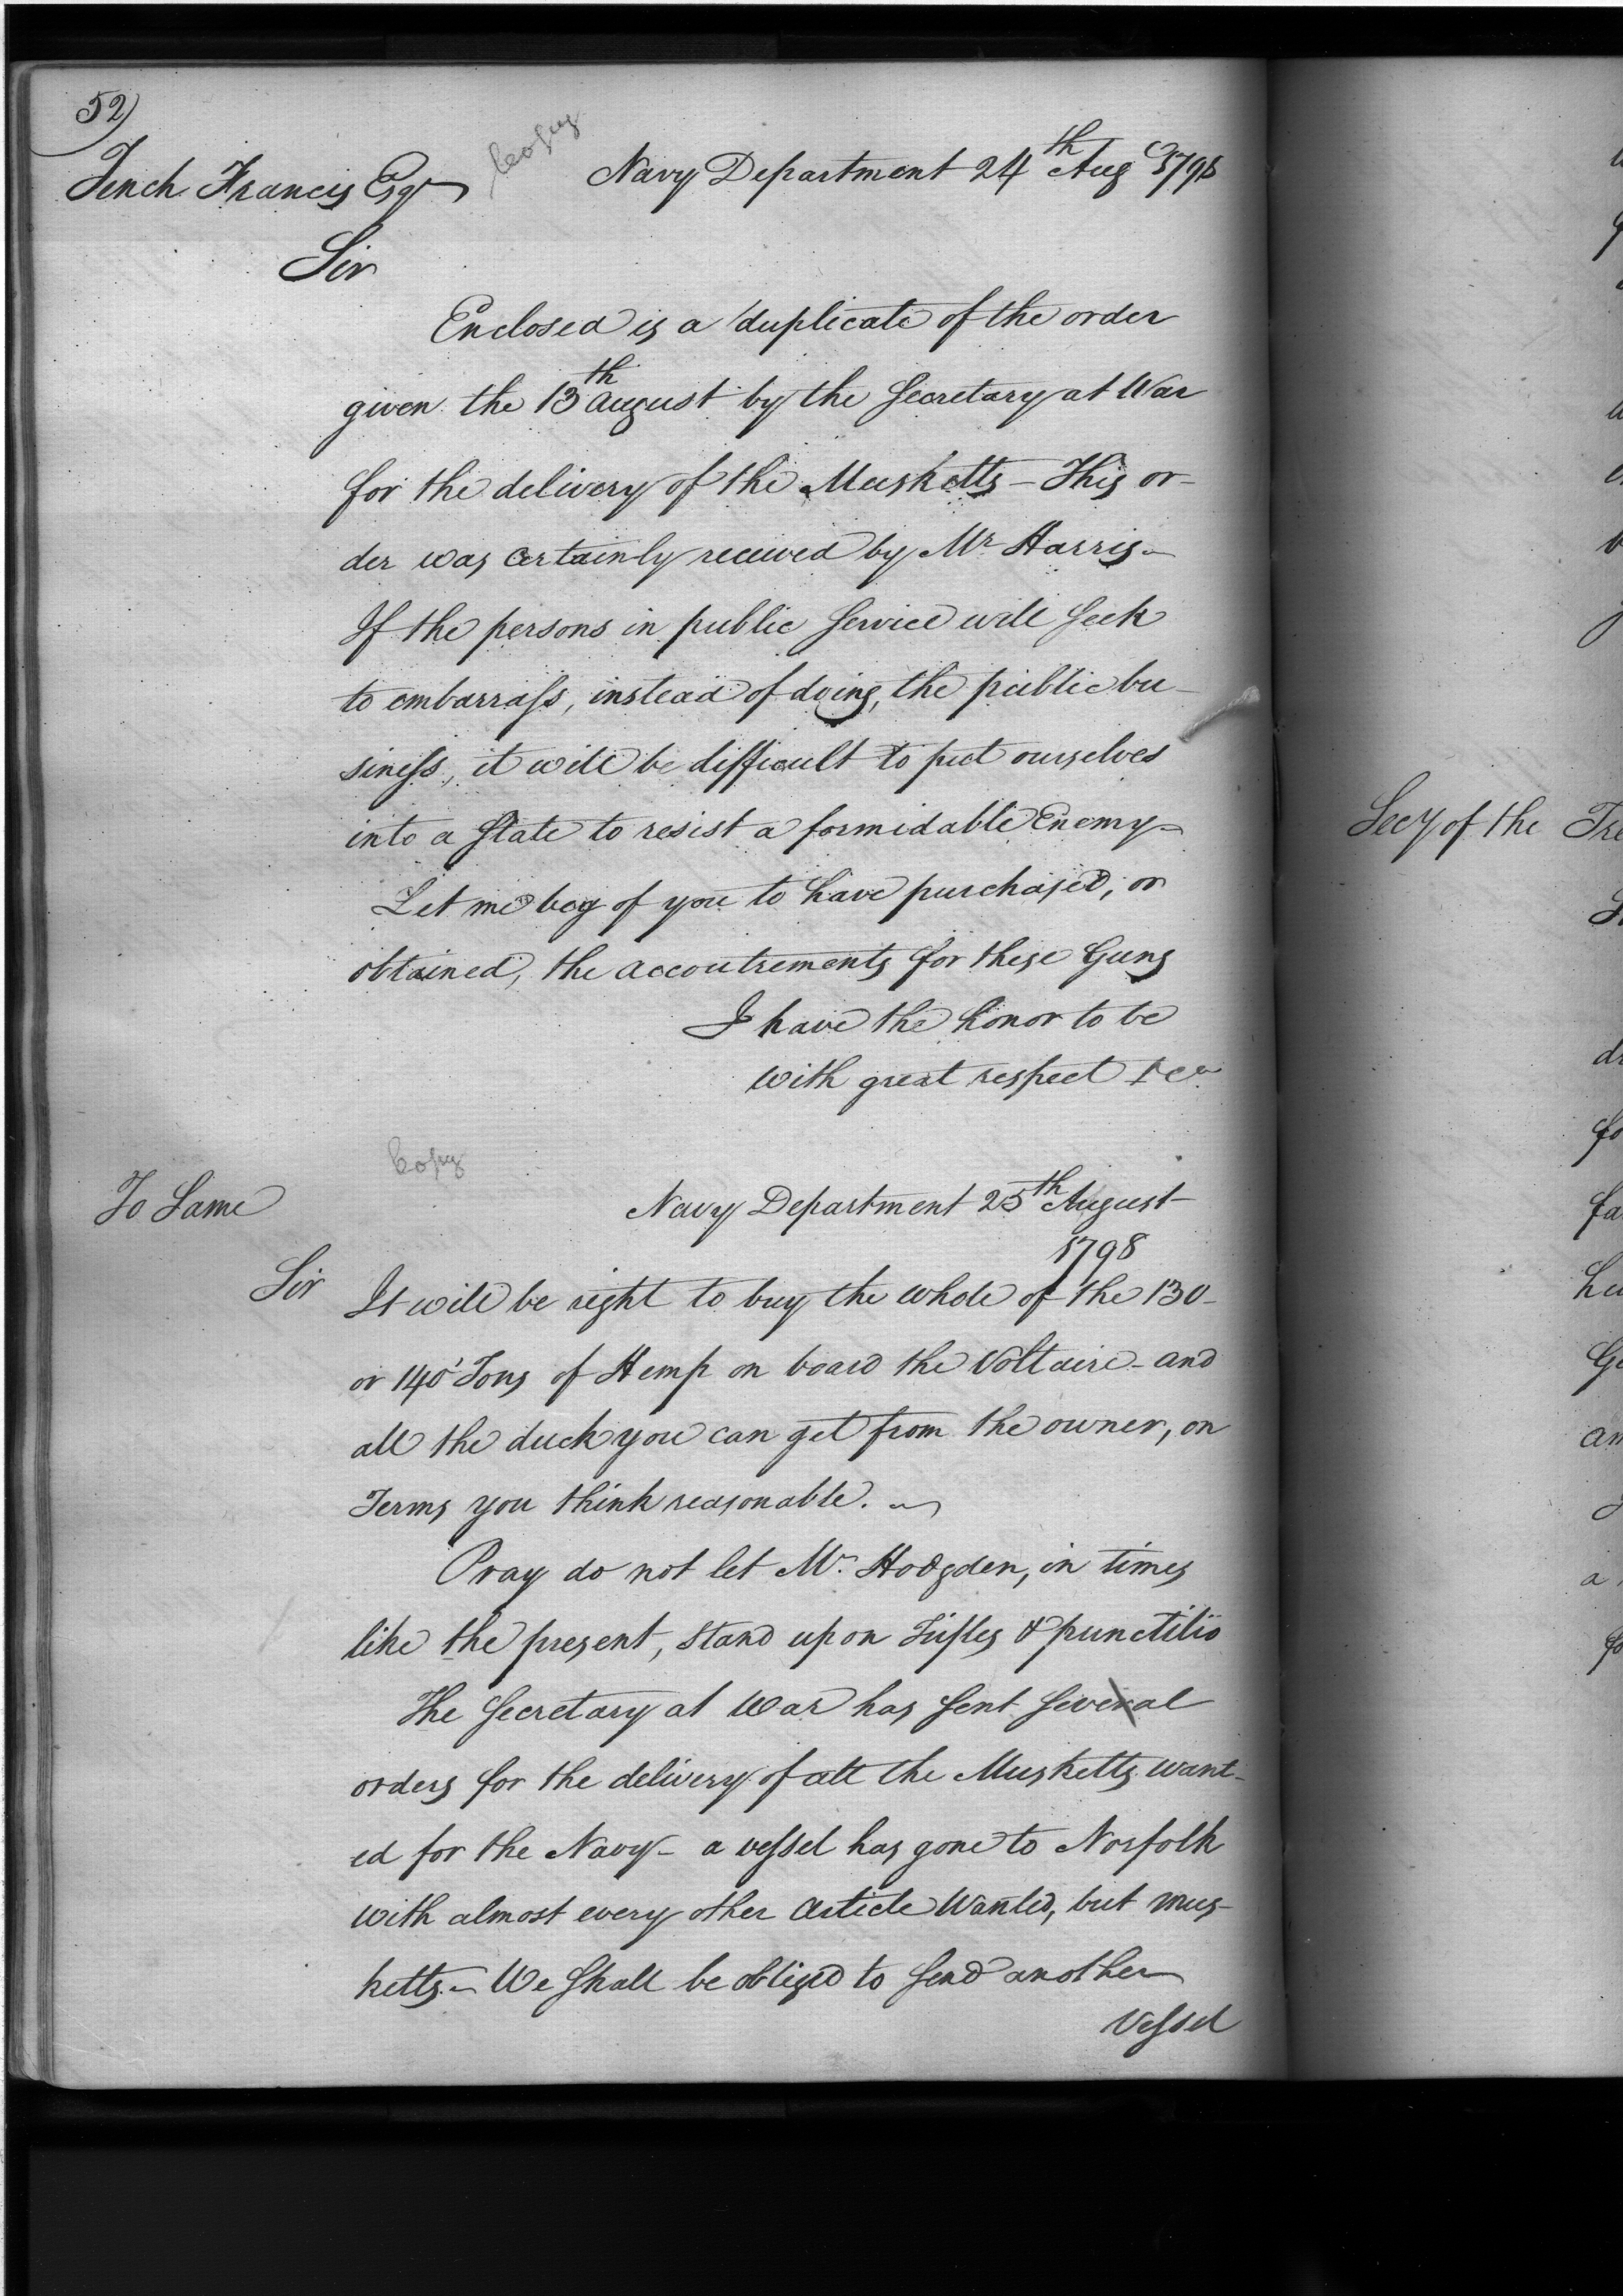 52)
Tench Francis Esqr
Copy
Navy Department 24th Augt 1798
Sir
Enclosed is a duplicate of the order
given the 13th August by the Secretary at War
for the delivery of the Musketts – This or-
der was certainly received by Mr Harris –
If the persons in public Service will seek
to embarrass, instead of doing, the public bu-
siness, it will be difficult to put ourselves
into a State to resist a formidable Enemy –
Let me beg of you to have purchased, or
obtained, the accoutrements for these Guns
I have the honor to be
with great respect &ca
Copy
To Same
Navy Department 25th August
1798
Sir
It will be right to buy the whole of the 130
or 140 Tons of Hemp on board the Voltaire – and
all the duck you can get from the owner, on
Terms you think reasonable. –
Pray do not let Mr Hodgden, in times
like the present, stand upon Trifles & punctilio
The Secretary at War has sent several
orders for the delivery of all the Musketts want-
ed for the Navy – a vessel has gone to Norfolk
with almost every other article Wanted, but mus-
ketts – We shall be obliged to send another
Vessel
Secy of the